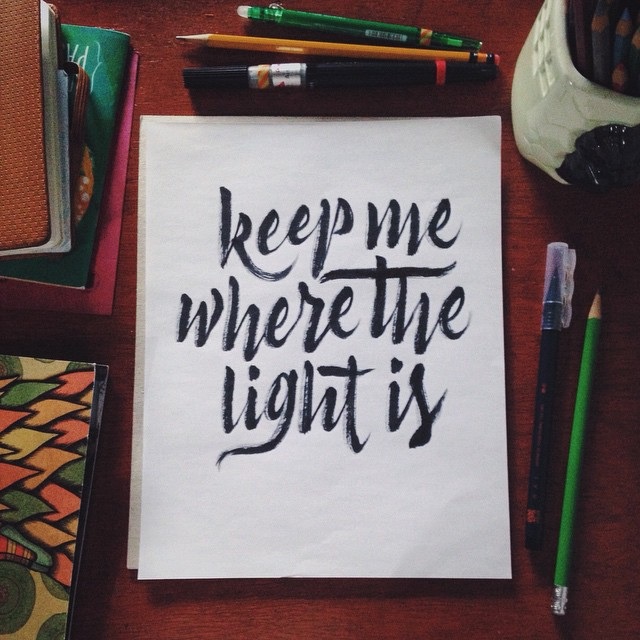 keep me
where the
light is